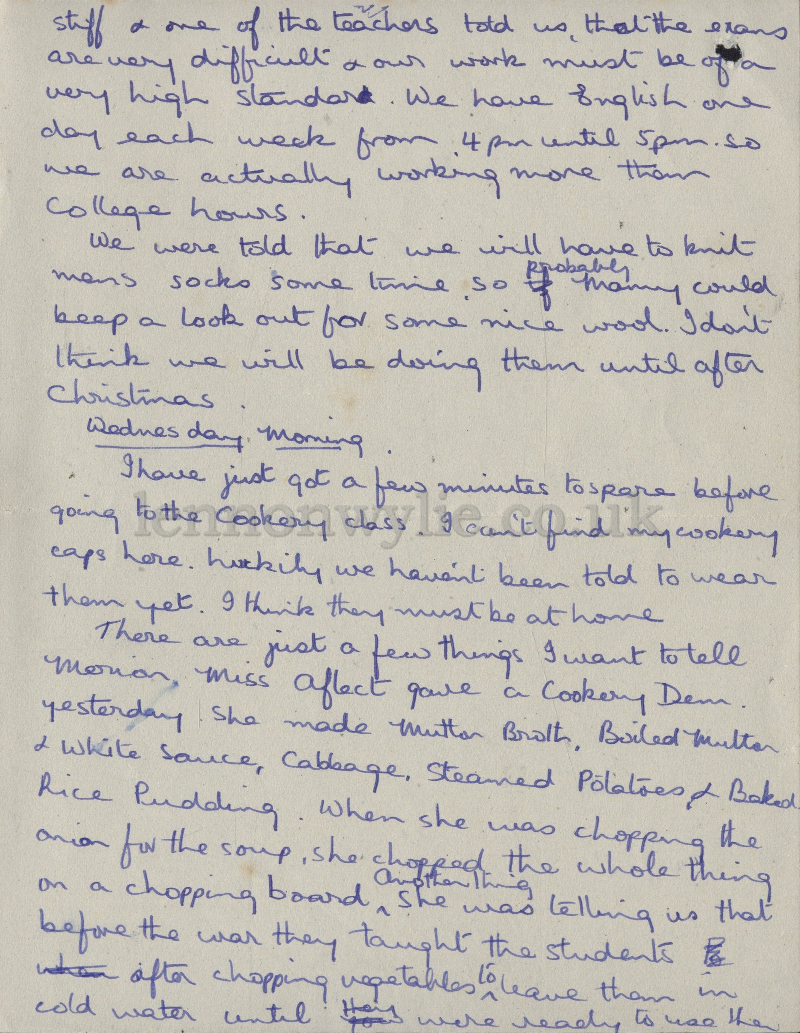 stiff & one of the teachers told us, that the exams
are very difficult & our work must be of a
very high standard. We have English one
day each week from 4 pm until 5pm. so
we are actually working more than
College hours.
We were told that we will have to knit
probably
mens socks some time, so if Mammy could
keep a look out for some nice wool. I don't
think we will be doing them until after
Christmas.
Wednesday Morning.
I have just got a few minutes to spare before
going to the Cookery class. I can't find my cookery
caps here. Luckily we haven't been told to wear
them yet. I think they must be at home
There are just a few things I want to tell
Marion. Miss Aflect gave a Cookery Dem.
yesterday she made Mutton Broth, Boiled Mutton
& White Sauce, Cabbage, Steamed Potatoes, & Baked
Rice Pudding. When she was chopping the
onion for the soup, she chopped the whole thing
Another thing
on a chopping board. ^ She was telling us that
before the war they taught the students
when after chopping vegetables to leave them in
cold water until they were ready to use the
lennonwylie.co.uk